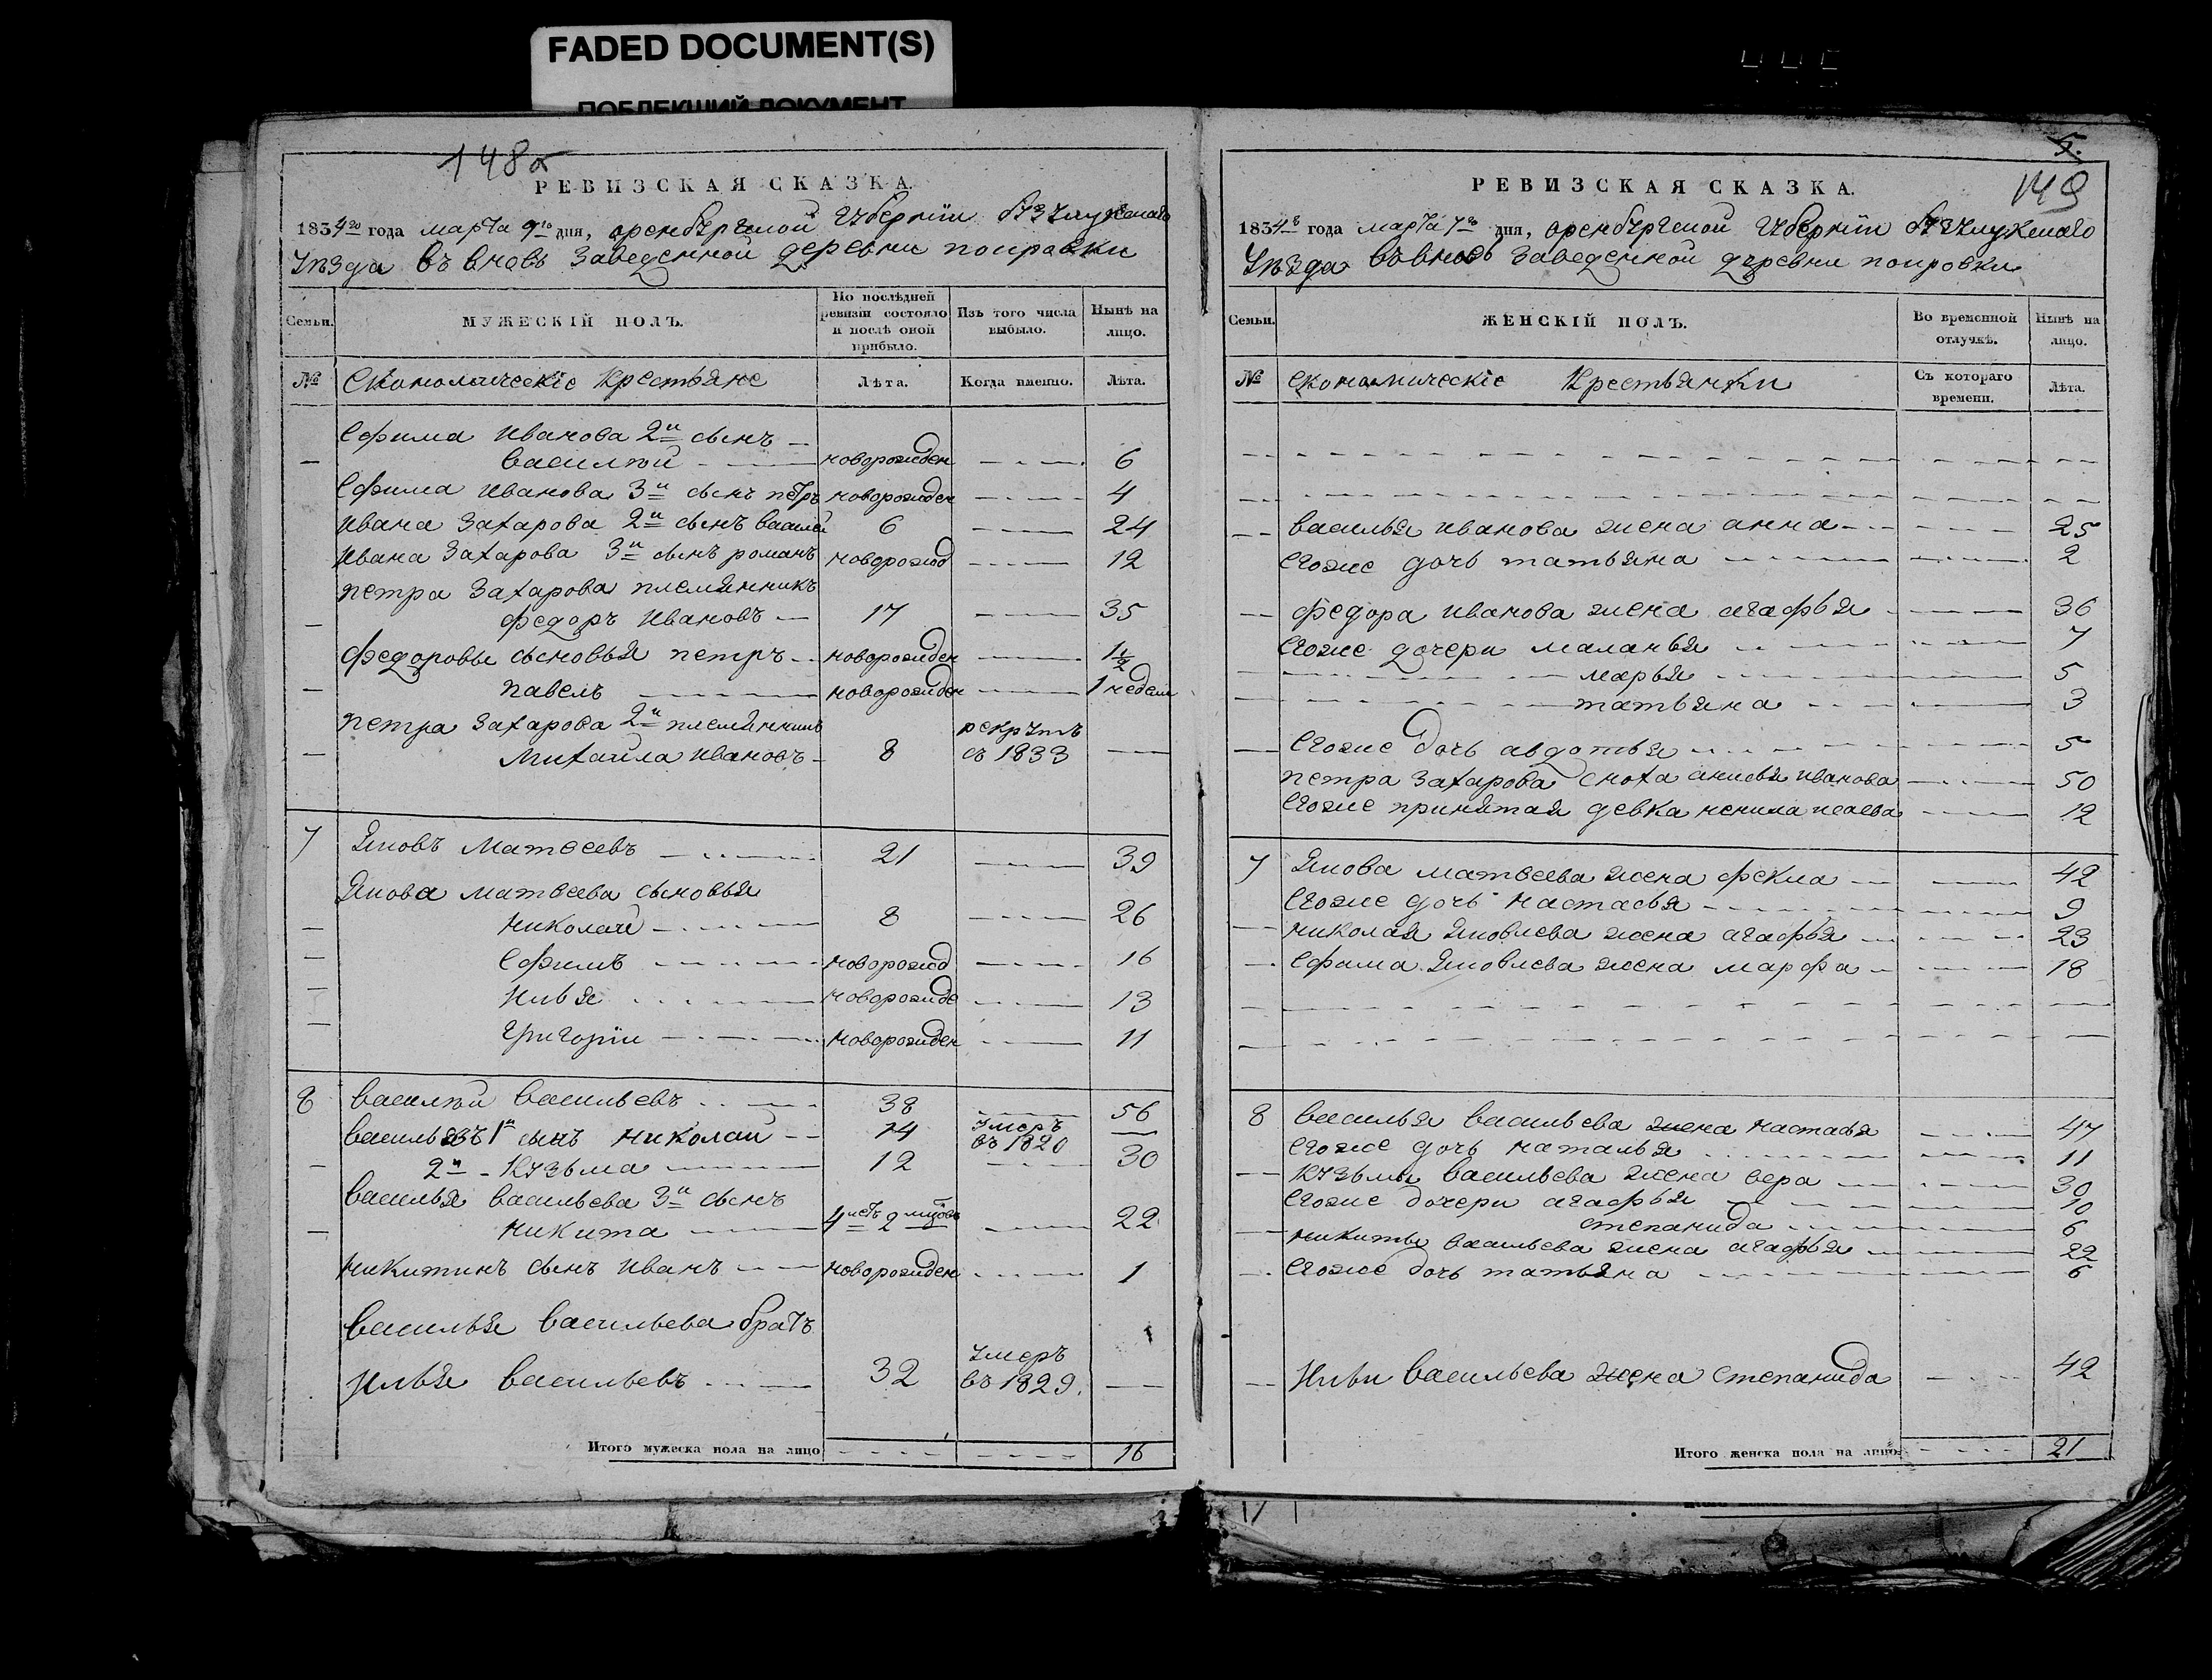 FADED DOCUMENT(S)
ПОБЛЕКШИЙ ДОКУМЕНТ
148
РЕВИЗСКАЯ СКАЗКА.
1834 года марта дня, оренбургской губернии бузулукскаго
уѣзда въ вновь заведенной деревни покровки
Семьи.
МУЖЕСКІЙ ПОЛЪ.
По послѣдней ревизіи состояло и послѣ оной прибыло.
Изъ того числа выбыло.
Нынѣ на лицо.
№ Економическіе крестьяне
Лѣта.
Когда именно.
Лѣта.
Ефима иванова 2й сынъ
василій новорожден 6
Ефима иванова 3й сынъ петръ новорожден 4
ивана захарова 2й сынъ василей 6 24
ивана захарова 3й сынъ романъ новорожд 12
петра захарова племянникъ
федоръ ивановъ 17 35
федоровы сыновья петръ новорожден 1½
павелъ новорожден 1 недели
петра захарова 2й племянникъ рекрутъ
михаила ивановъ 8 съ 1833
7 Яковъ матвеевъ 21 39
Якова матвеева сыновья
николай 8 26
Ефимъ новорожд 16
илья новорожде 13
григории новорожден 11
8 василий васильевъ 38 56
васильевъ 1й сынъ николай 14 умеръ въ 1820
2й кузьма 12 30
василья васильева 3й сынъ
никита 4 летъ 2 22
никитинъ сынъ иванъ новорожден 1
василья васильева братъ
илья васильевъ 32 умеръ въ 1829.
Итого мужеска пола на лицо 16
5.
149
РЕВИЗСКАЯ СКАЗКА.
1834 года марта дня, оренбургской губернии бузулукскаго
уѣзда въ вновь заведенной деревни покровки
Семьи.
ЖЕНСКІЙ ПОЛЪ.
Во временной отлучкѣ.
Нынѣ на лицо.
№ Економическіе крестьянки
Съ котораго времени.
Лѣта.
василья иванова жена анна 25
Егоже дочь татьяна 2
федора иванова жена агафья 36
Егоже дочери маланья 7
марья 5
татьяна 3
Егоже дочь авдотья 5
петра захарова сноха анисья иванова 50
Егоже принятая девка ненила 12
7 Якова матвеева жена фекла 42
Егоже дочь настасья 9
николая яковлева жена агафья 23
Ефима яковлева жена марфа 18
8 василья васильева жена настасья 47
Егоже дочь наталья 11
кузьмы васильева жена вера 30
Егоже дочери агафья 10
степанида 6
никиты васильева жена агафья 22
Егоже дочь татьяна 6
ильи васильева жена степанида 42
Итого женска пола на лицо 21